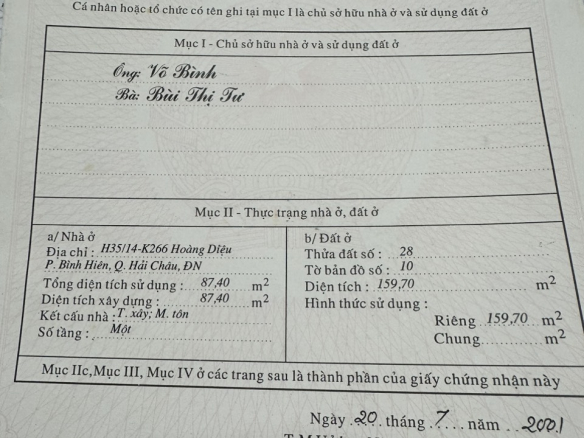 Cá nhân hoặc tổ chức có tên ghi tại mục I là chủ sở hữu nhà ở và sử dụng đất ở
Mục I - Chủ sở hữu nhà ở và sử dụng đất ở
Ông: Võ Bình
Bà: Bùi Thị Tư
Mục II - Thực trạng nhà ở, đất ở
a/ Nhà ở
Địa chỉ : H35/14-K266 Hoàng Diệu
P. Bình Hiên, Q. Hải Châu, ĐN
Tổng diện tích sử dụng : 87,40 m2
Diện tích xây dựng : 87,40 m2
Kết cấu nhà : T. xây; M. tôn
Số tầng : Một
b/ Đất ở
Thửa đất số : 28
Tờ bản đồ số : 10
Diện tích : 159,70 m2
Hình thức sử dụng :
Riêng 159,70 m2
Chung m2
Mục IIc, Mục III, Mục IV ở các trang sau là thành phần của giấy chứng nhận này
Ngày 20 tháng 7 năm 2001